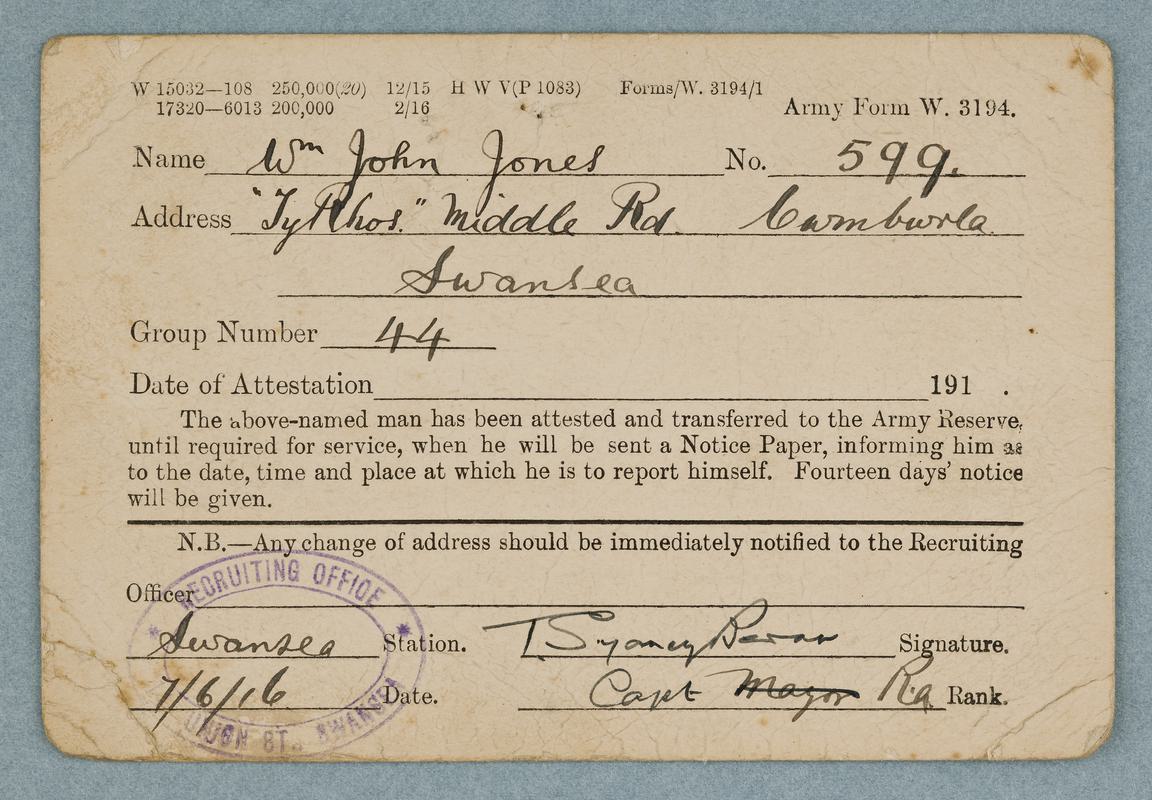 W 15032—108 250,000(20) 12/15 H W V(P 1083) Forms/W. 3194/1
17320—6013 200,000 2/16 Army Form W. 3194.
Name Wm John Jones No. 599.
Address "Ty Rhos." Middle Rd. Cwmbwrla.
Swansea
Group Number 44
Date of Attestation 191 .
The above-named man has been attested and transferred to the Army Reserve,
until required for service, when he will be sent a Notice Paper, informing him as
to the date, time and place at which he is to report himself. Fourteen days' notice
will be given.
N.B.—Any change of address should be immediately notified to the Recruiting
Officer
RECRUITING OFFICE
Swansea Station. T Sydney Signature.
7/6/16 Date. Capt Major Rank.
UNION ST. SWANSEA